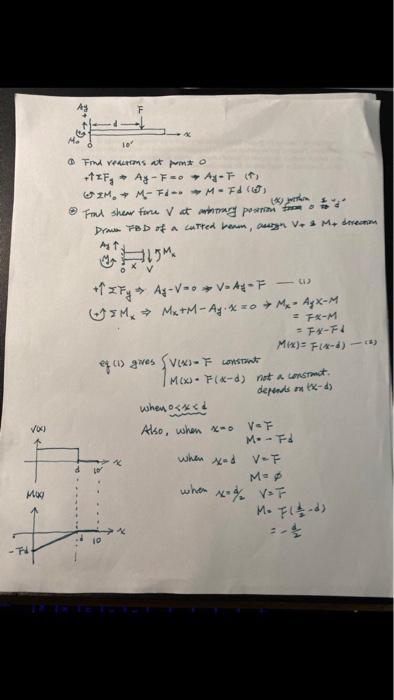 Ay
F
d
x
Mo
0
10'
① Find reactions at point O
+↑ΣFy ⇒ Ay-F=0 → Ay=F (↑)
ΣMo → M-Fd=0 ⇒ M=Fd
② Find shear force V at arbitrary position (x) within 0 & "d"
Draw FBD of a cutted beam, assign V+ & M+ direction
Ay ↑
Mx
0 x V
+↑ ΣFy ⇒ Ay-V=0 ⇒ V=Ay=F — (1)
ΣMx ⇒ Mx+M-Ay·x=0 → Mx = Ayx-M
= Fx-M
= Fx-Fd
M(x)= F(x-d) — (2)
eq (1) gives { V(x)=F constant
M(x)= F(x-d) not a constant.
depends on (x-d)
when 0<x<d
Also, when x=0 V=F
M=-Fd
when x=d V=F
M=ø
when x=d/2 V=F
M= F(d/2-d)
=-d/2
V(x)
d 10' x
M(x)
d 10 x
-Fd